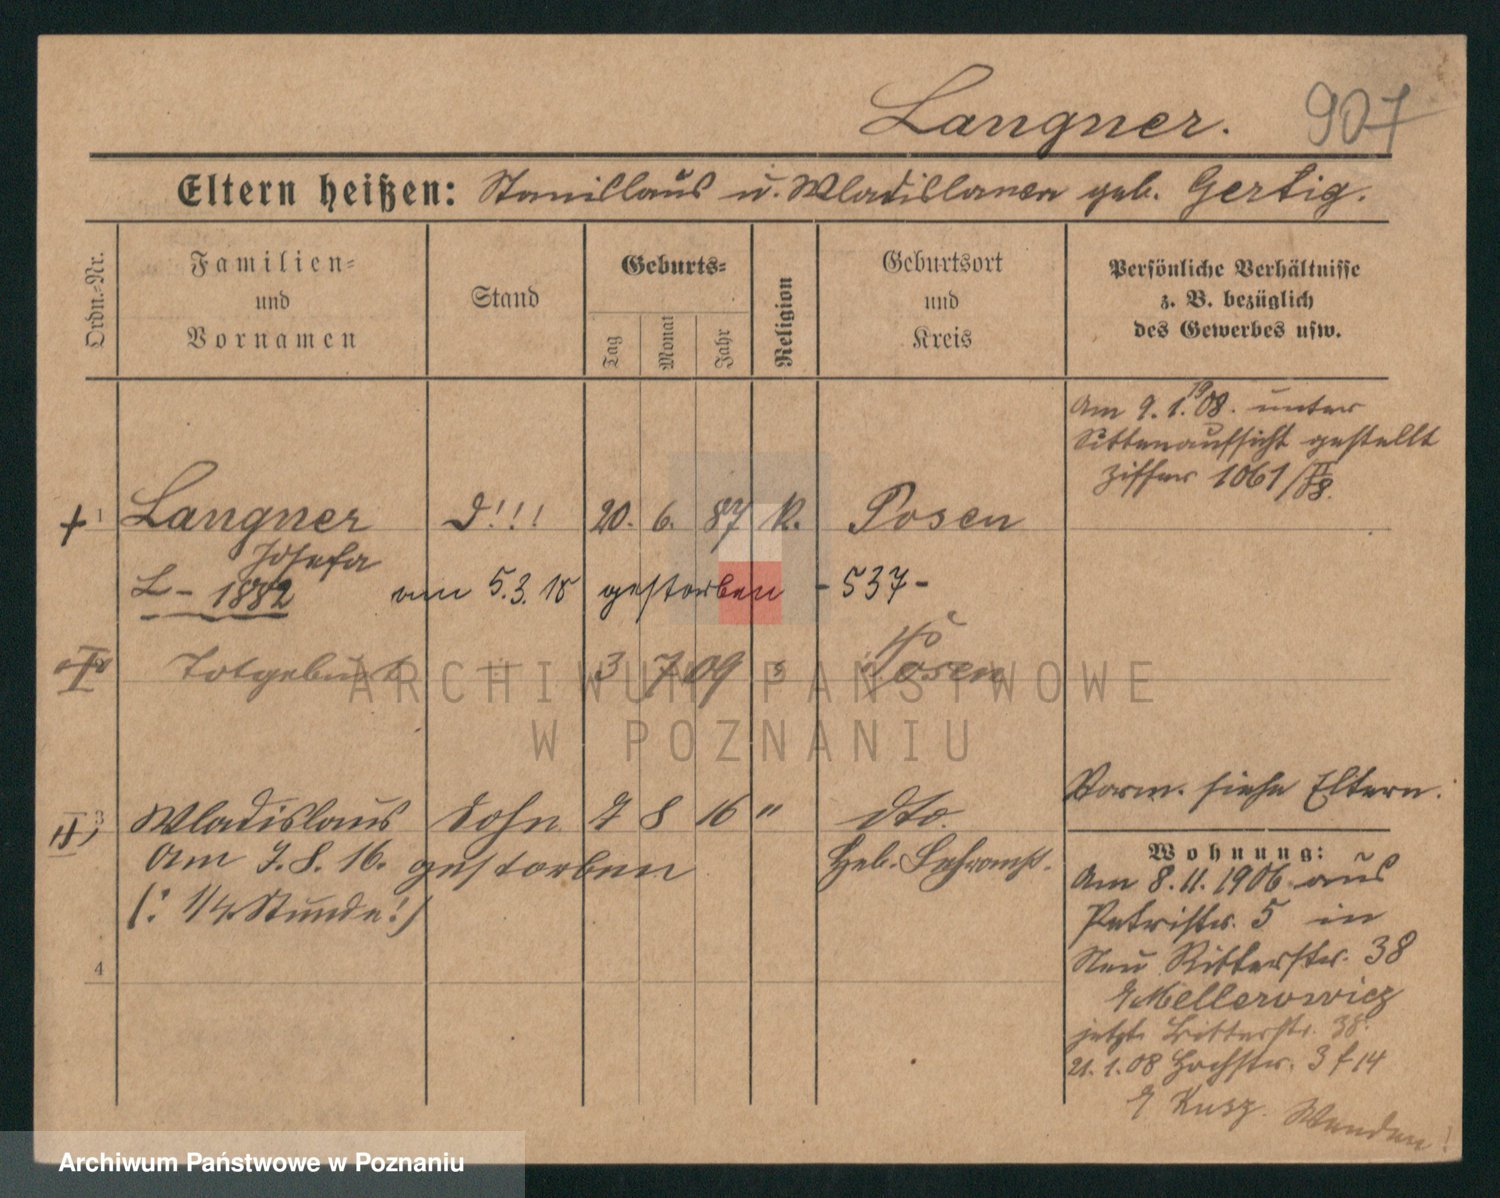 Langner. 907
Eltern heißen: Stanislaus u. Wladislawa geb. Gertig.
Ordn.-Nr.
Familien-
und
Vornamen
Stand
Geburts-
Tag
Monat
Jahr
Religion
Geburtsort
und
Kreis
Persönliche Verhältnisse
z. B. bezüglich
des Gewerbes usw.
Am 9.1.1908. unter
Sittenaufsicht gestellt
Ziffer 1061/
+ 1 Langner D!!! 20. 6. 87 K. Posen
Josefa
L - 1882 am 5.3.18 gestorben - 537 -
I Totgeburt 3 7 09 Posen
II) 3 Wladislaus Sohn 7 8 16 " dto.
Am 7.8.16. gestorben Heb.
(: 1/4 Stunde!)
4
Vorm. siehe Eltern.
Wohnung:
Am 8.11.1906 aus
Petristr. 5 in
Neu Ritterstr. 38
Mellerowicz
jetzt Ritterstr. 38.
21.1.08 Hochstr. 3 f 14
Kusz. Wenden!
ARCHIWUM PAŃSTWOWE
W POZNANIU
Archiwum Państwowe w Poznaniu